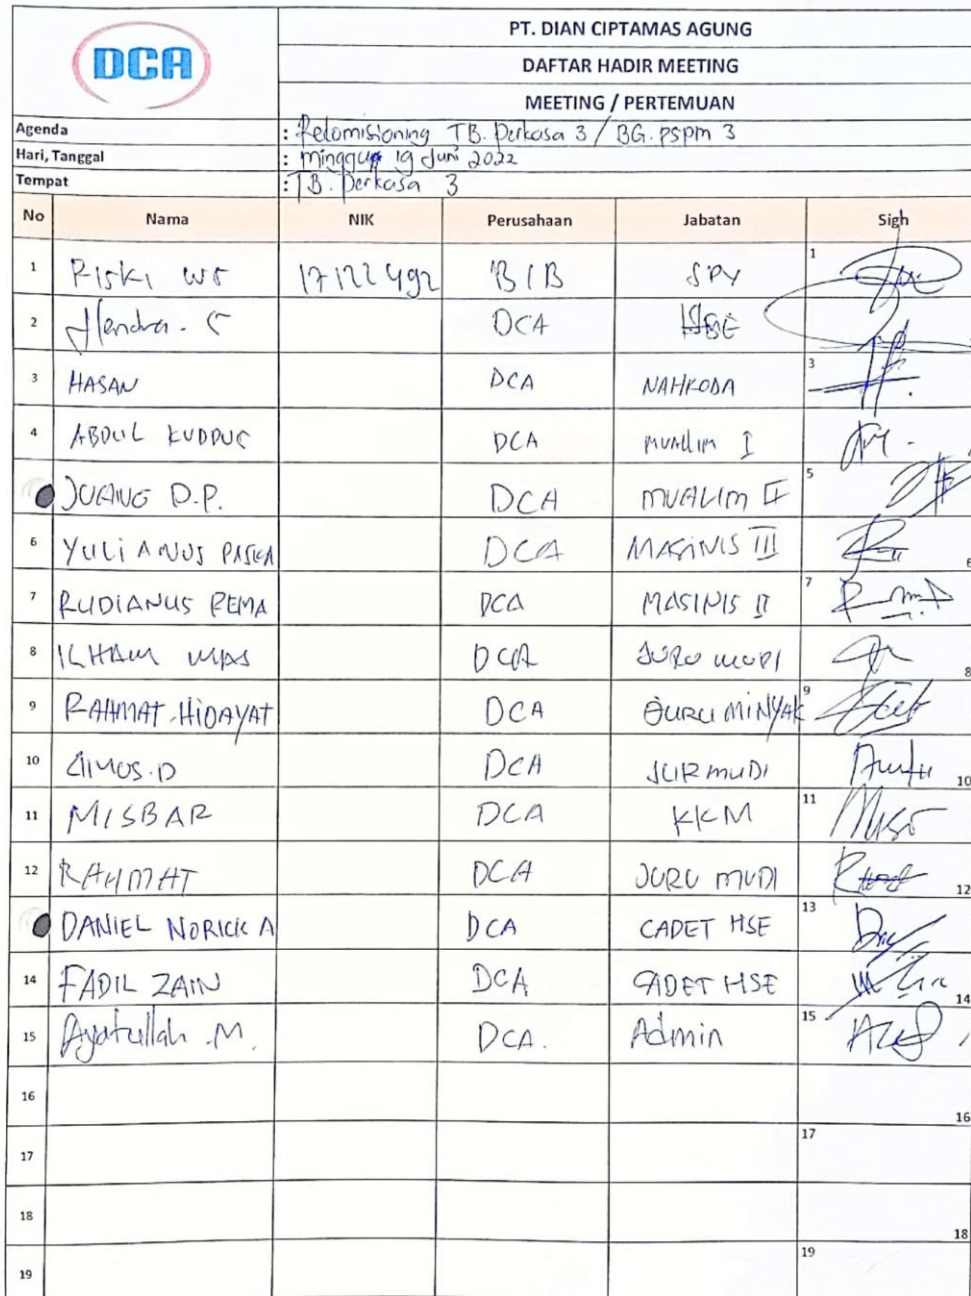 DCA
PT. DIAN CIPTAMAS AGUNG
DAFTAR HADIR MEETING
MEETING / PERTEMUAN
Agenda : Rekomisioning TB. Perkasa 3 / BG. PSPM 3
Hari, Tanggal : minggu 19 Juni 2022
Tempat : TB. Perkasa 3
No Nama NIK Perusahaan Jabatan Sigh
1 Riski WS 17122492 BIB SPV 1
2 Hendra. S DCA HSE
3 HASAN DCA NAHKODA 3
4 ABDUL KUDDUS DCA MUALLIM I 4
JUANG D.P. DCA MUALIM II 5
6 YULIANUS PASKA DCA MASINIS III 6
7 RUDIANUS REMA DCA MASINIS II 7
8 ILHAM DCA JURU MUDI 8
9 RAHMAT HIDAYAT DCA JURU MINYAK 9
10 AMOS.D DCA JURMUDI 10
11 MISBAR DCA KKM 11
12 RAHMAT DCA JURU MUDI 12
DANIEL NORICK A DCA CADET HSE 13
14 FADIL ZAIN DCA CADET HSE 14
15 Ayatullah .M. DCA. Admin 15
16 16
17 17
18 18
19 19